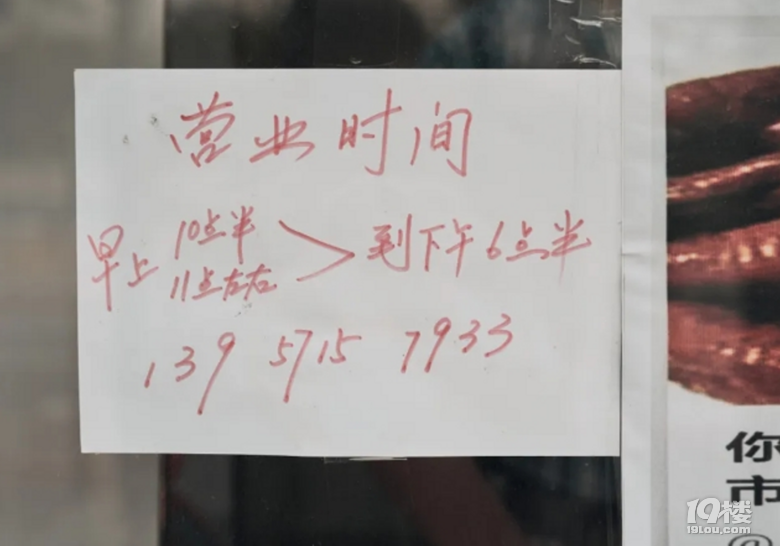 营业时间
早上 10点半
11点左右 > 到下午6点半
139 5715 7933
你
市
@
19楼
19lou.com